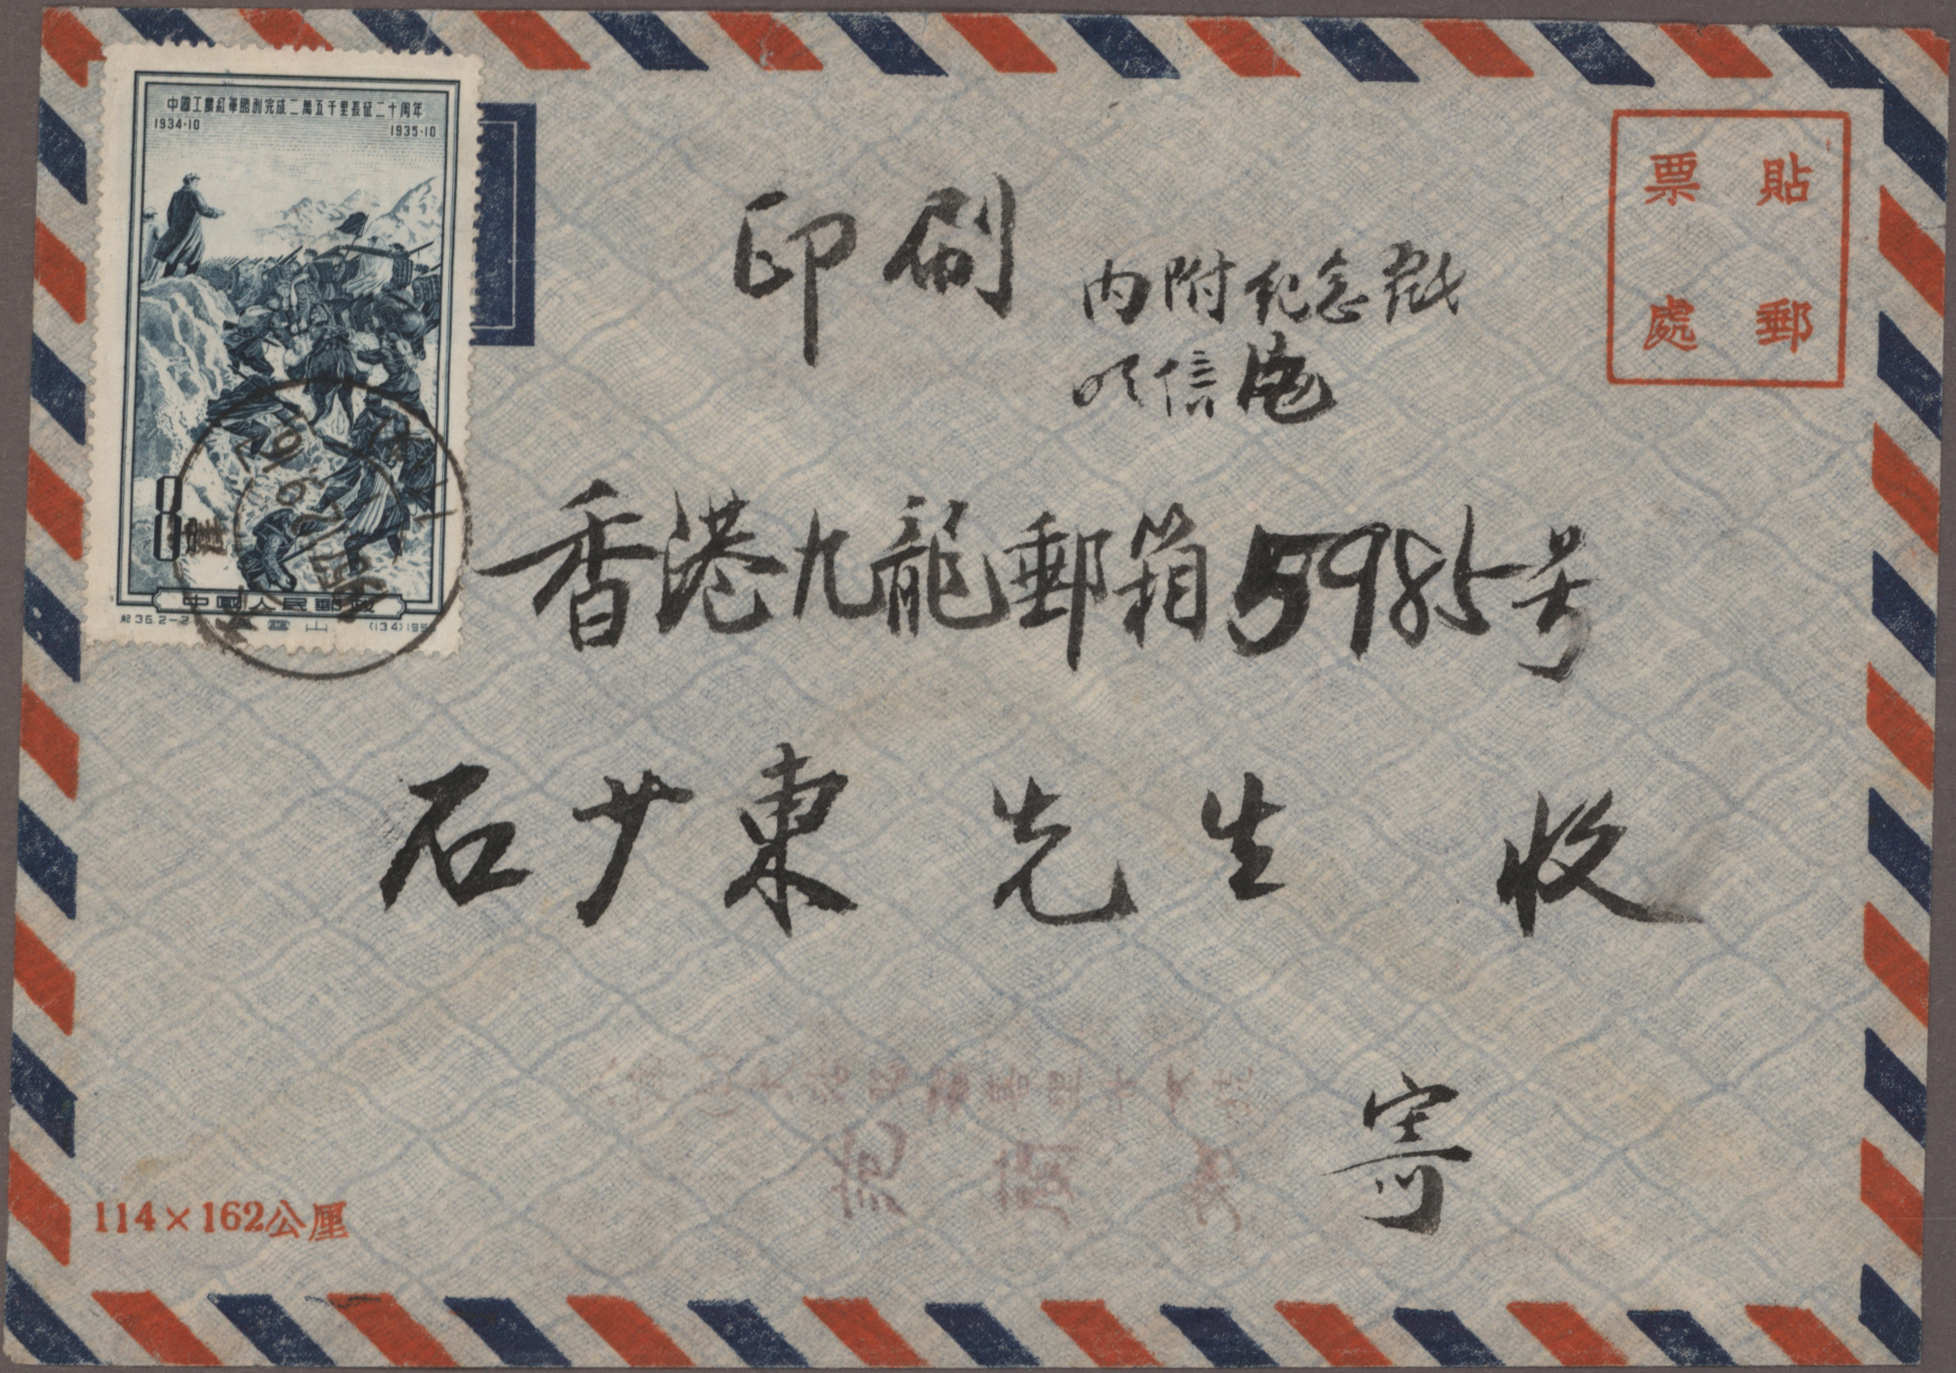 中國工農紅軍勝利完成二萬五千里長征二十周年
1934·10 1935·10
8
中國人民郵政
紀36.2-2
(134)195
貼郵票處
印刷
內附紀念戳
明信片
香港九龍郵箱5985号
石少東 先生 收
寄
114×162公厘